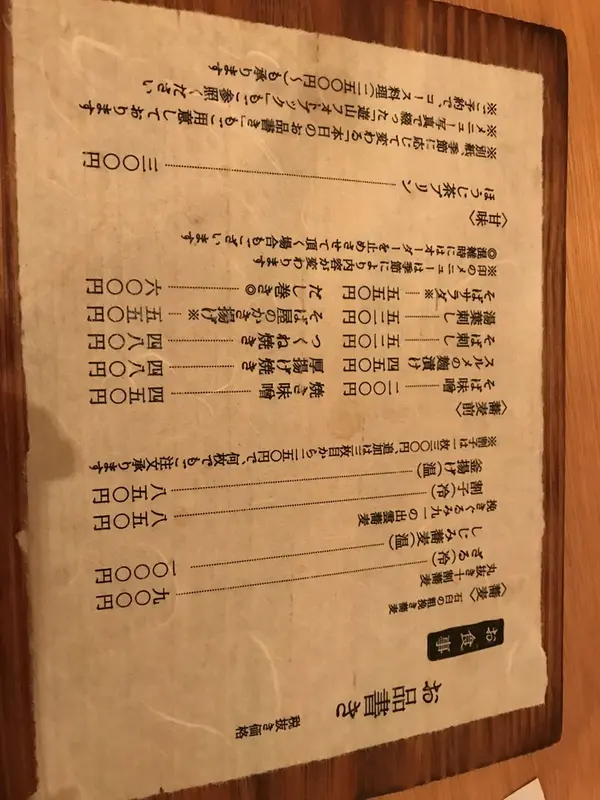 お品書き
税抜き価格
お食事
〈蕎麦〉
石臼の粗挽き蕎麦
丸抜き十割蕎麦
ざる(冷) 九〇〇円
しじみ蕎麦(温) 一〇〇〇円
挽きぐるみ九一の出雲蕎麦
割子(冷) 八五〇円
釜揚げ(温) 八五〇円
追加は三枚目から二五〇円で、何枚でもご注文承ります
〈蕎麦前〉
そば味噌 二〇〇円
スルメの麹漬け 四五〇円
そば刺し
湯葉刺し
そばサラダ※ 五五〇円
焼き味噌 四五〇円
厚揚げ焼き 四八〇円
つくね焼き 四八〇円
そば屋のかき揚げ※ 五五〇円
だし巻き◎ 六〇〇円
※印のメニューは季節により内容が変わります
◎混雑時にはオーダーを止めさせて頂く場合もございます
〈甘味〉
ほうじ茶プリン 三〇〇円
※別紙、季節に応じて変わる「本日のお品書き」もご用意しております
※メニュー写真で綴った「遊山フォトブック」もご参照ください
※ご予約で、コース料理(二五〇〇円〜)も承ります